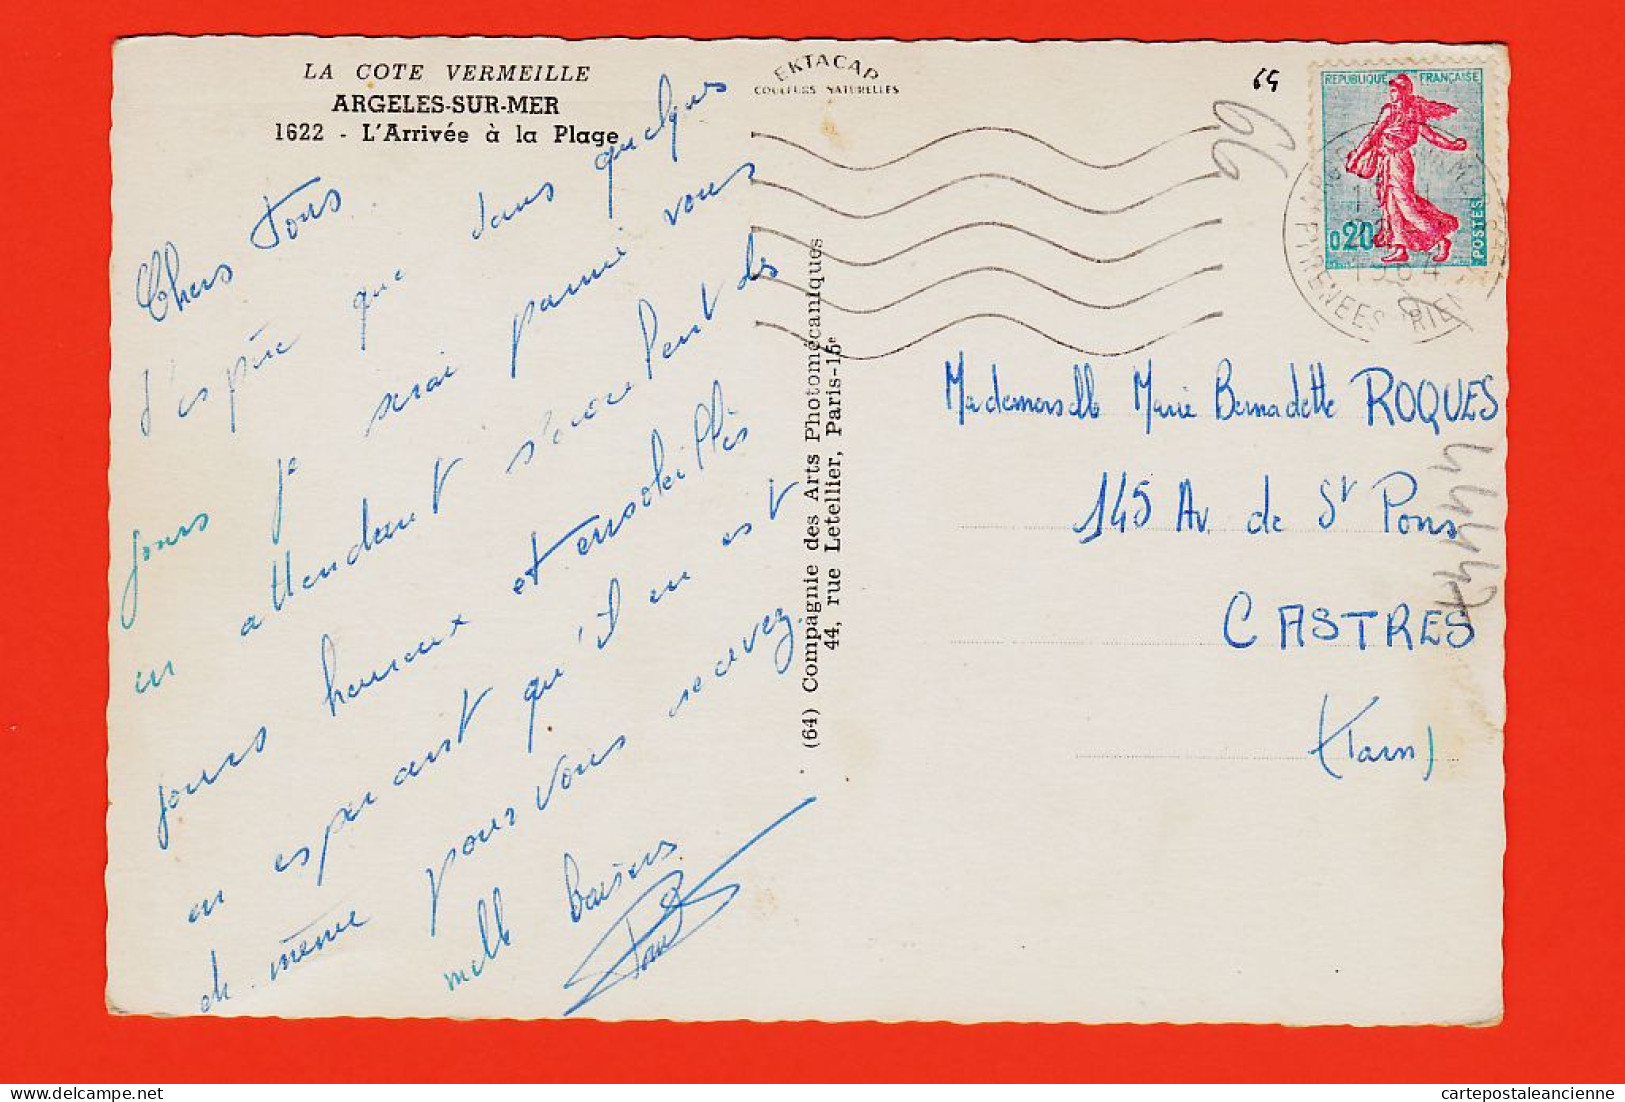 LA COTE VERMEILLE
ARGELES-SUR-MER
1622 - L'Arrivée à la Plage
EKTACAP
COULEURS NATURELLES
Chers Tous
J'espère que dans quelques
jours je serai parmi vous
en attendant s'écoulent des
jours heureux et ensoleillés
en espérant qu'il en est
de même pour vous recevez
mille baisers
Paul
(64) Compagnie des Arts Photomécaniques
44, rue Letellier, Paris-15e
64
66
REPUBLIQUE FRANÇAISE
0,20
POSTES
PYRENEES ORIEN
1964
Mademoiselle Marie Bernadette ROQUES
145 Av. de St Pons
CASTRES
(Tarn)
cartepostaleancienne
delcampe.net